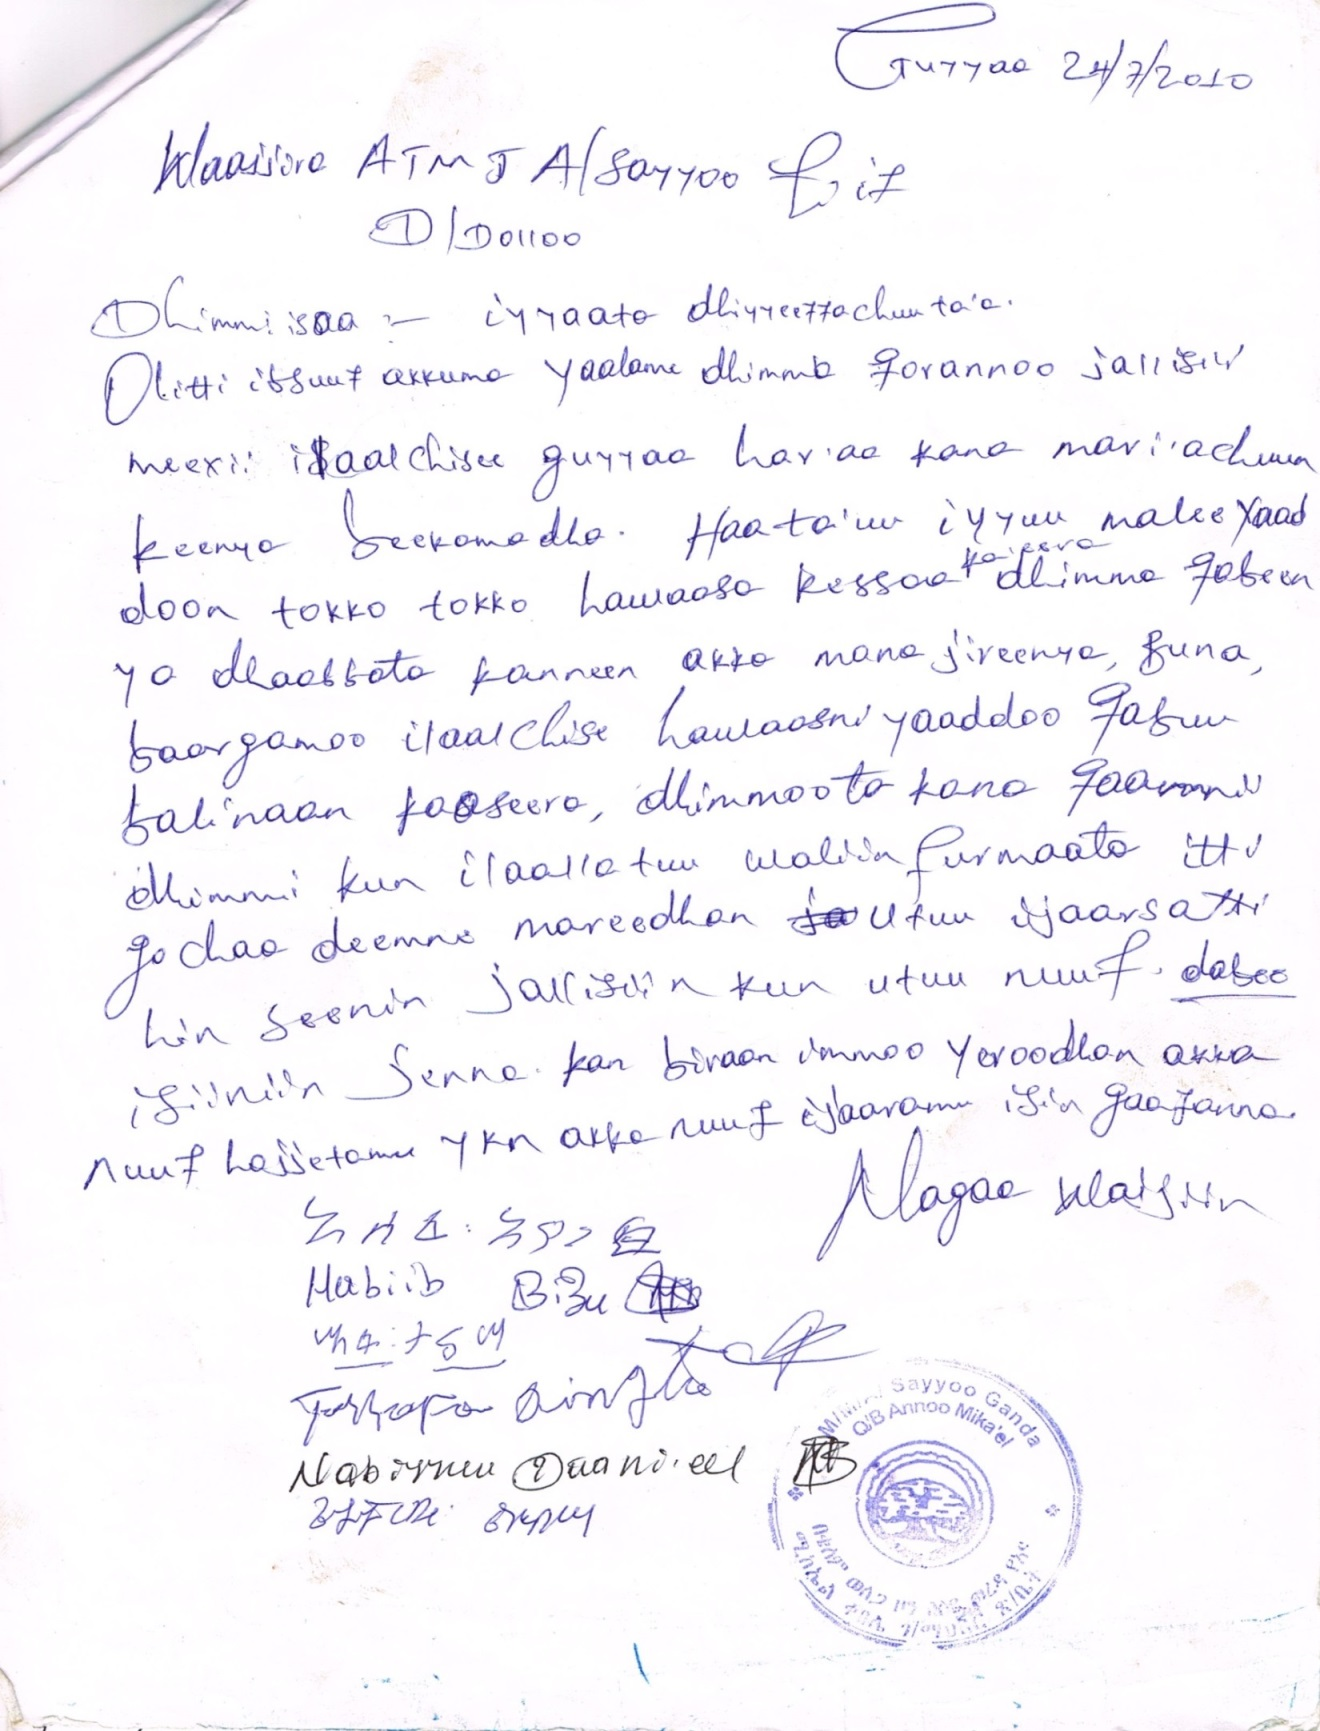 Guyyaa 24/7/2010
Waajjira ATMJ A/Sayyoo fif
D/Dolloo
Dhimmi isaa :- iyyaata dhiyyeeffachuu ta'a.
Olitti ibsuuf akkuma yaalame dhimma qorannoo jallisii
meexii ilaalchisee guyyaa har'aa kana mari'achuun
keenya beekamadha. Haata'uu iyyuu malee yaad
doon tokko tokko hawaasa kessaa ka'eera dhimma qabeen
ya dhaabbata kanneen akka mana jireenya, buna,
baargamoo ilaalchise hawaasni yaaddoo qabuu
bal'inaan kaaseera, dhimmoota kana
dhimmi kun ilaallatuu waliin furmaata itti
gochaa deemne mareedhan utuu ijaarsatti
hin seenin jallisiin kun utuu nuuf. dabee
isiiniin jenna. kan biraan immoo yeroodhan akka
nuuf hajjetamu ykn akka nuuf ijaaramu isin gaafanna.
Nagaa Wajjiin
Habiib Bizu
Nabiyyuu Daani'eel
M/M/A/ Sayyoo Ganda
Q/B Annoo Mika'el